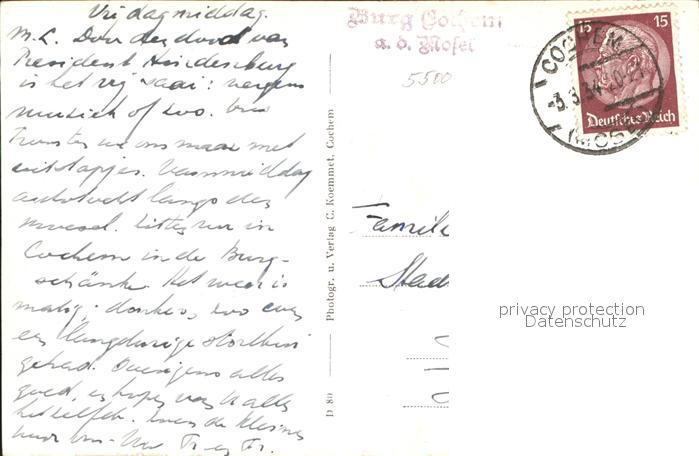 Vrijdagmiddag.
M. L. Door den dood van
President Hindenburg
is het vrij saai: nergens
muziek of zoo. Dus
troosten we ons maar met
uitstapjes. Vanmiddag
autotocht langs den
Moesel. Zitten nu in
Cochem in de Burg-
schänke. Het weer is
matig; donker, zoo even
een langdurige stortbui
gehad. Overigens alles
goed, en hopen van U alles
hetzelfde.
Burg Cochem
a. d. Mosel
5500
15 15
Deutsches Reich
COCHEM
-3.8.34.20-21
(MOSEL)
Photogr. u. Verlag C. Koemmet, Cochem
D 80
Familie
Stad
privacy protection
Datenschutz